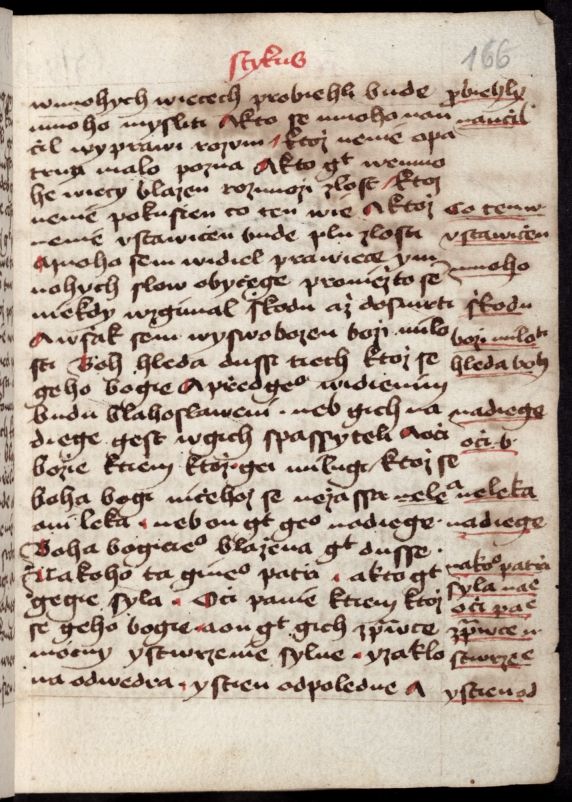 stykus
166
wmnohych wiecech probiehli bude
mnoho mysliti Akto se mnoho nau
cil wyprawi rozum ktoz neme opa
trug malo pozna Akto gt wemno
he wiecy blazen rozmnozi zlost ktoz
neme pokusien co ten wie Aktoz
neme vstawicen bude pln zlosti
Mnoho sem widiel prawiece ym
nohych slow obyčege promiezto se
niekdy wzgimal škodu až dosmrti
Awšak sem wyswobozen boži milo
sti Boh hleda dussi tiech ktož se
geho bogie Apředgeo widienim
budu blahoslaweni neb gich na
diege gest wgich spassyteli Aoči
božie ktiem ktož gei milugi ktož se
boha bogi ničehož se nežassa
ani leka nebon gt geo nadiege
Boha bogicieo blazena gt dusse
Nakoho ta gineo patři akto gt
gegie syla Oči panie ktiem ktož
se geho bogie aon gt gich zprwce
mocny ystwrzenie sylne yzaklo
na odwedra ystien odpoledne A
probiehly
naučil
Co ten w
vstawičen
mnoho
škodu
boži milosti
hleda boh
nadiege
oči b
neleka
nadiege
nakoo patři
syla nae
oči pae
zprwce m
stwrzee
ystien od